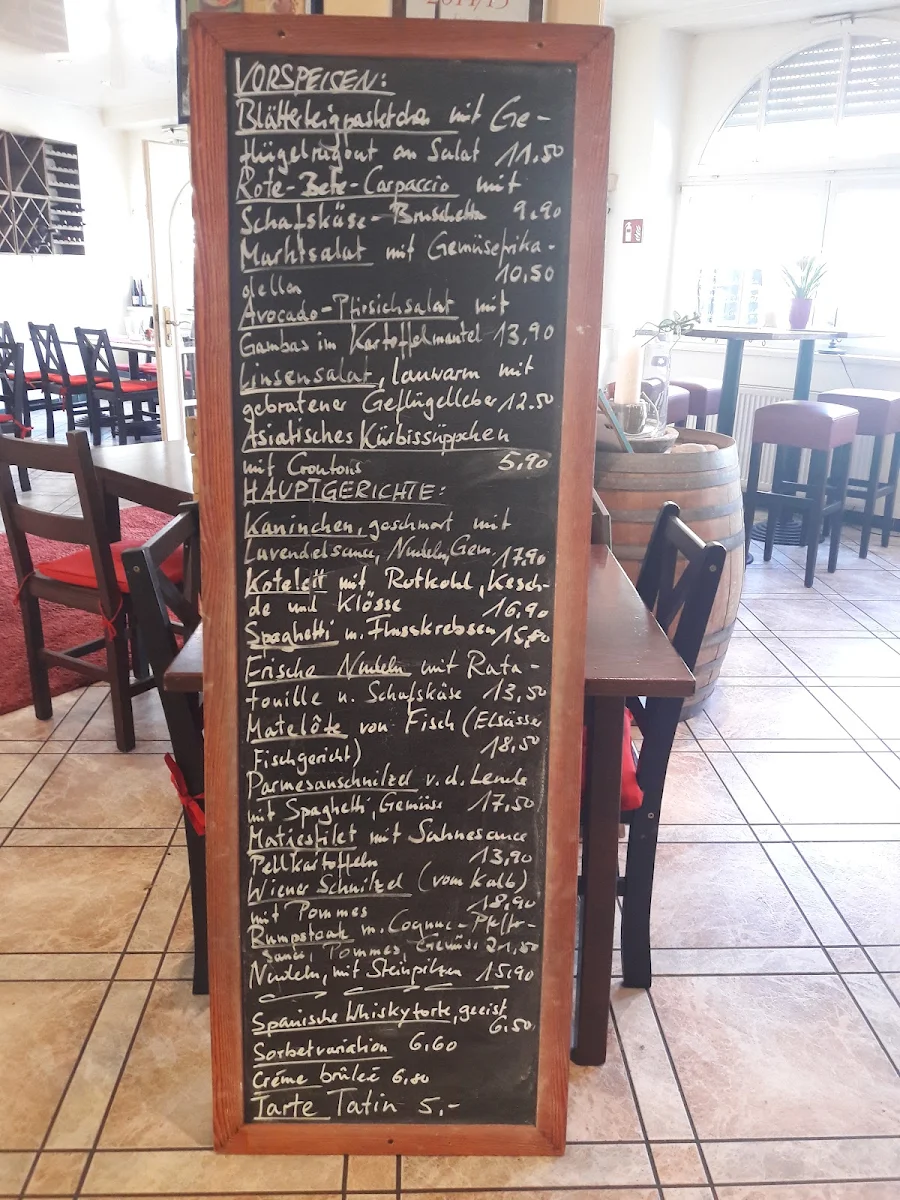 2014/15
VORSPEISEN:
Blätterteigpastetchen mit Ge-
flügelragout an Salat 11.50
Rote-Bete-Carpaccio mit
Schafskäse-Bruschetta 9.90
Marktsalat mit Gemüsefrika-
dellen 10,50
Avocado-Pfirsichsalat mit
Gambas im Kartoffelmantel 13,90
Linsensalat, lauwarm mit
gebratener Geflügelleber 12.50
Asiatisches Kürbissüppchen
mit Croutons 5,90
HAUPTGERICHTE:
Kaninchen, geschmort mit
Lavendelsauce, Nudeln, Gem. 17,90
Kotelett mit Rotkohl, Kesch-
de und Klösse 16,90
Spaghetti m. Flusskrebsen 15,80
Frische Nudeln mit Rata-
touille u. Schafskäse 13,50
Matelôte von Fisch (Elsässer
Fischgericht) 18,50
Parmesanschnitzel v. d. Lende
mit Spaghetti, Gemüse 17,50
Matjesfilet mit Sahnesauce
Pellkartoffeln 13,90
Wiener Schnitzel (vom Kalb)
mit Pommes 18,90
Rumpsteak m. Cognac-Pfeffer-
Sauce, Pommes, Gemüse 21,50
Nudeln, mit Steinpilzen 15,90
Spanische Whiskytorte, geeist
6,50
Sorbetvariation 6,60
Créme brûleé 6,80
Tarte Tatin 5,-